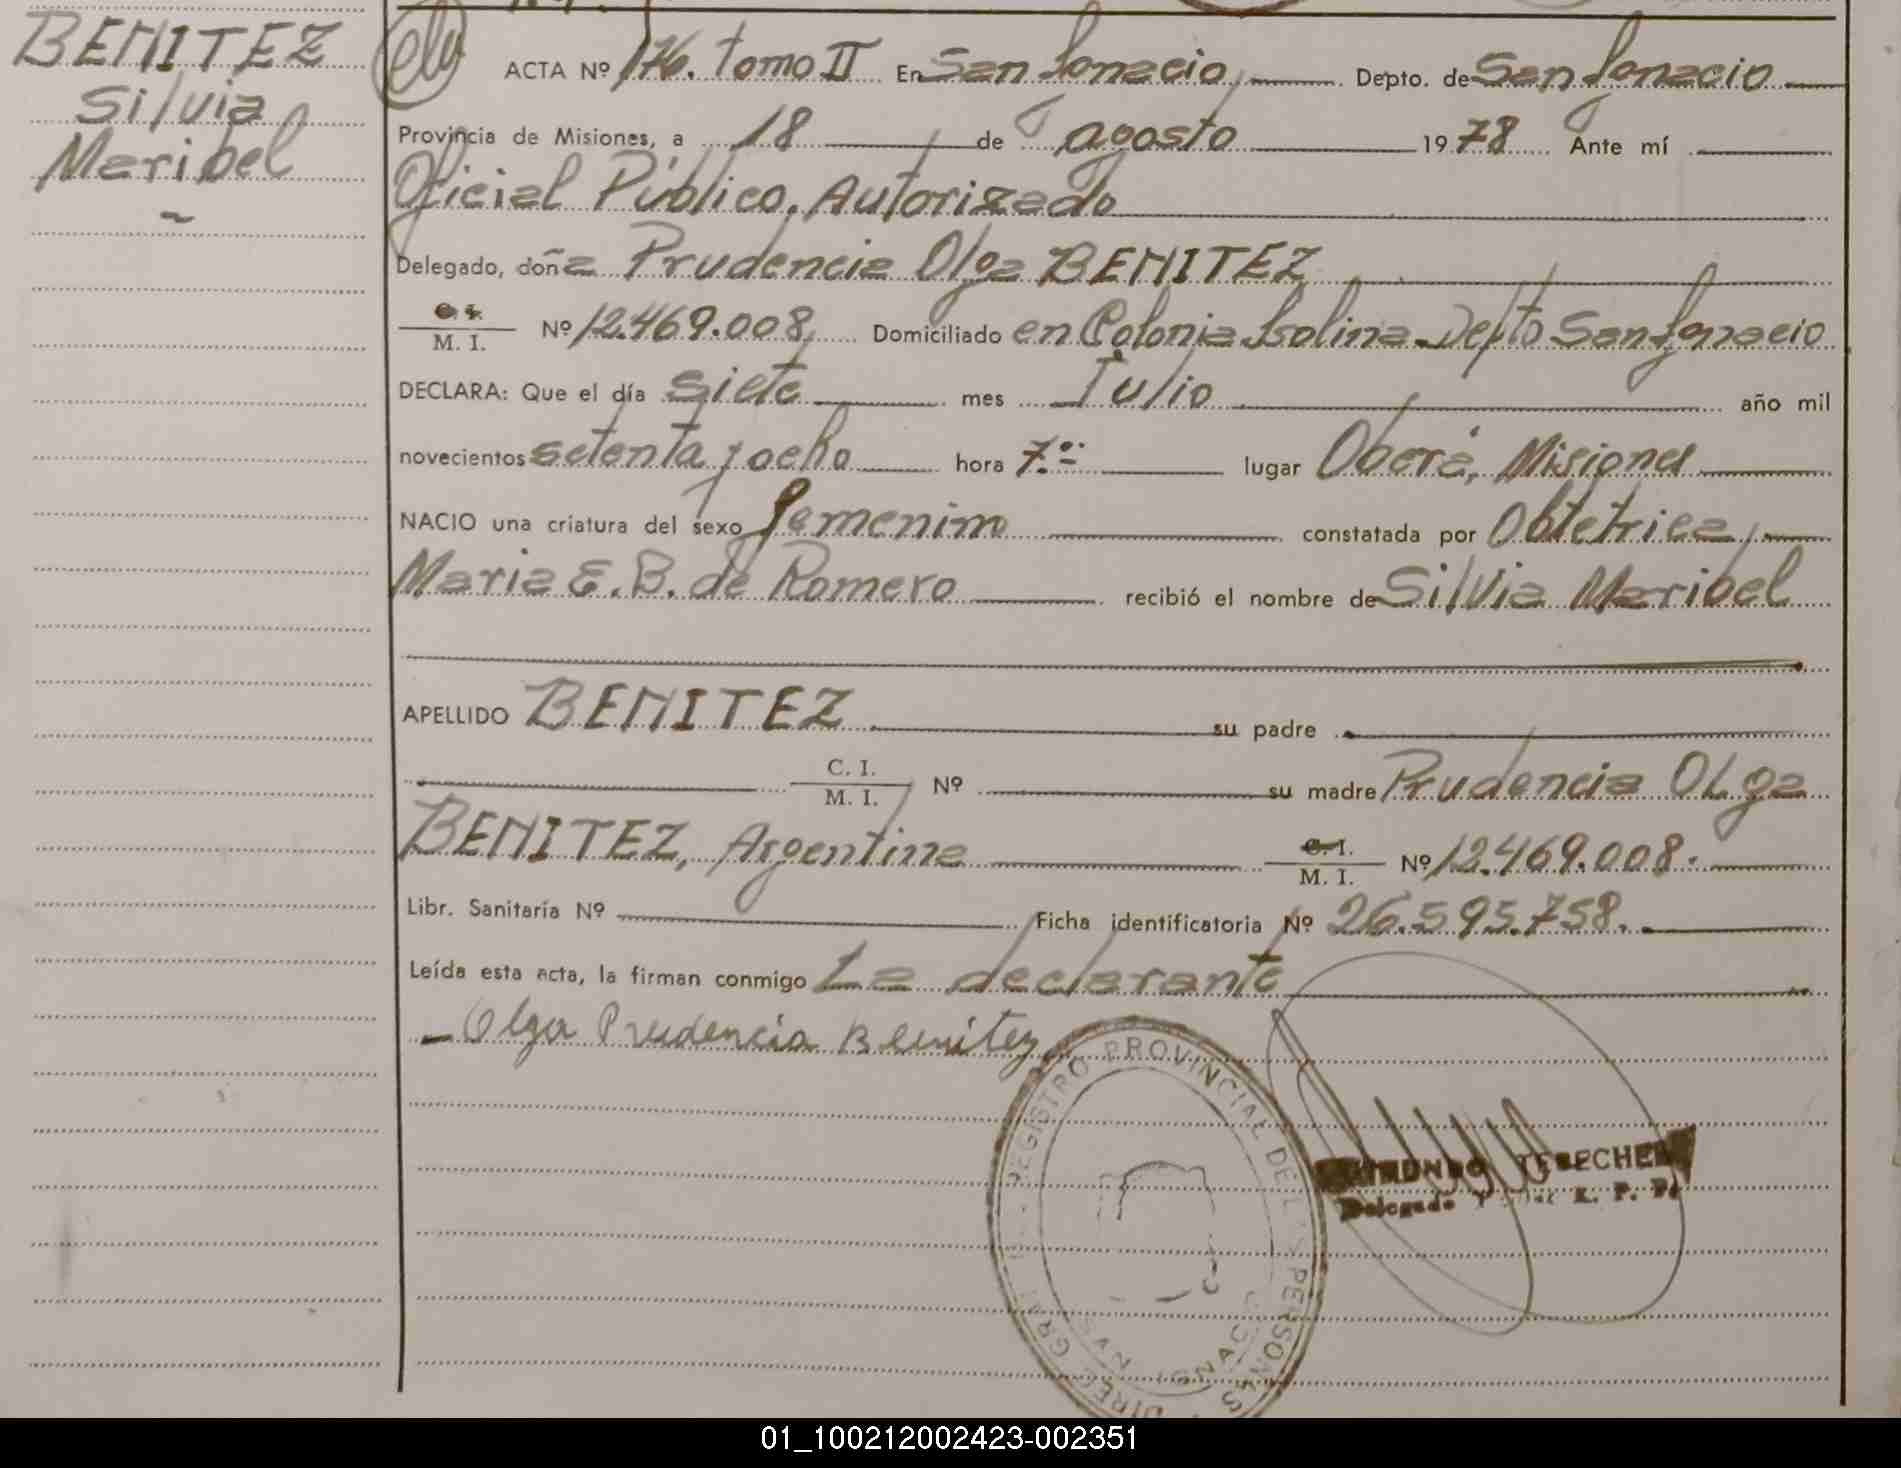 BENITEZ
Silvia
Maribel
ACTA Nº 176. tomo II En San Ignacio, Depto. de San Ignacio
Provincia de Misiones, a 18 de agosto 1978 Ante mí
Oficial Público, Autorizado
Delegado, doña Prudencia Olga BENITEZ
C. I.
M. I.
Nº 12.469.008, Domiciliado en Colonia Isolina Depto San Ignacio
DECLARA: Que el día siete mes Julio año mil
novecientos setenta y ocho hora 7.00 lugar Oberá, Misiones
NACIO una criatura del sexo femenino constatada por Obtetrica,
Maria E. B. de Romero recibió el nombre de Silvia Maribel
APELLIDO BENITEZ su padre
C. I.
M. I.
Nº su madre Prudencia OLga
BENITEZ, Argentina C. I.
M. I.
Nº 12.469.008.
Libr. Sanitaria Nº Ficha identificatoria Nº 26.595.758.
Leída esta acta, la firman conmigo La declarante
Olga Prudencia Benitez
REGISTRO PROVINCIAL DE LAS PERSONAS
SAN IGNACIO
TESECHE
Delegado
01_100212002423-002351